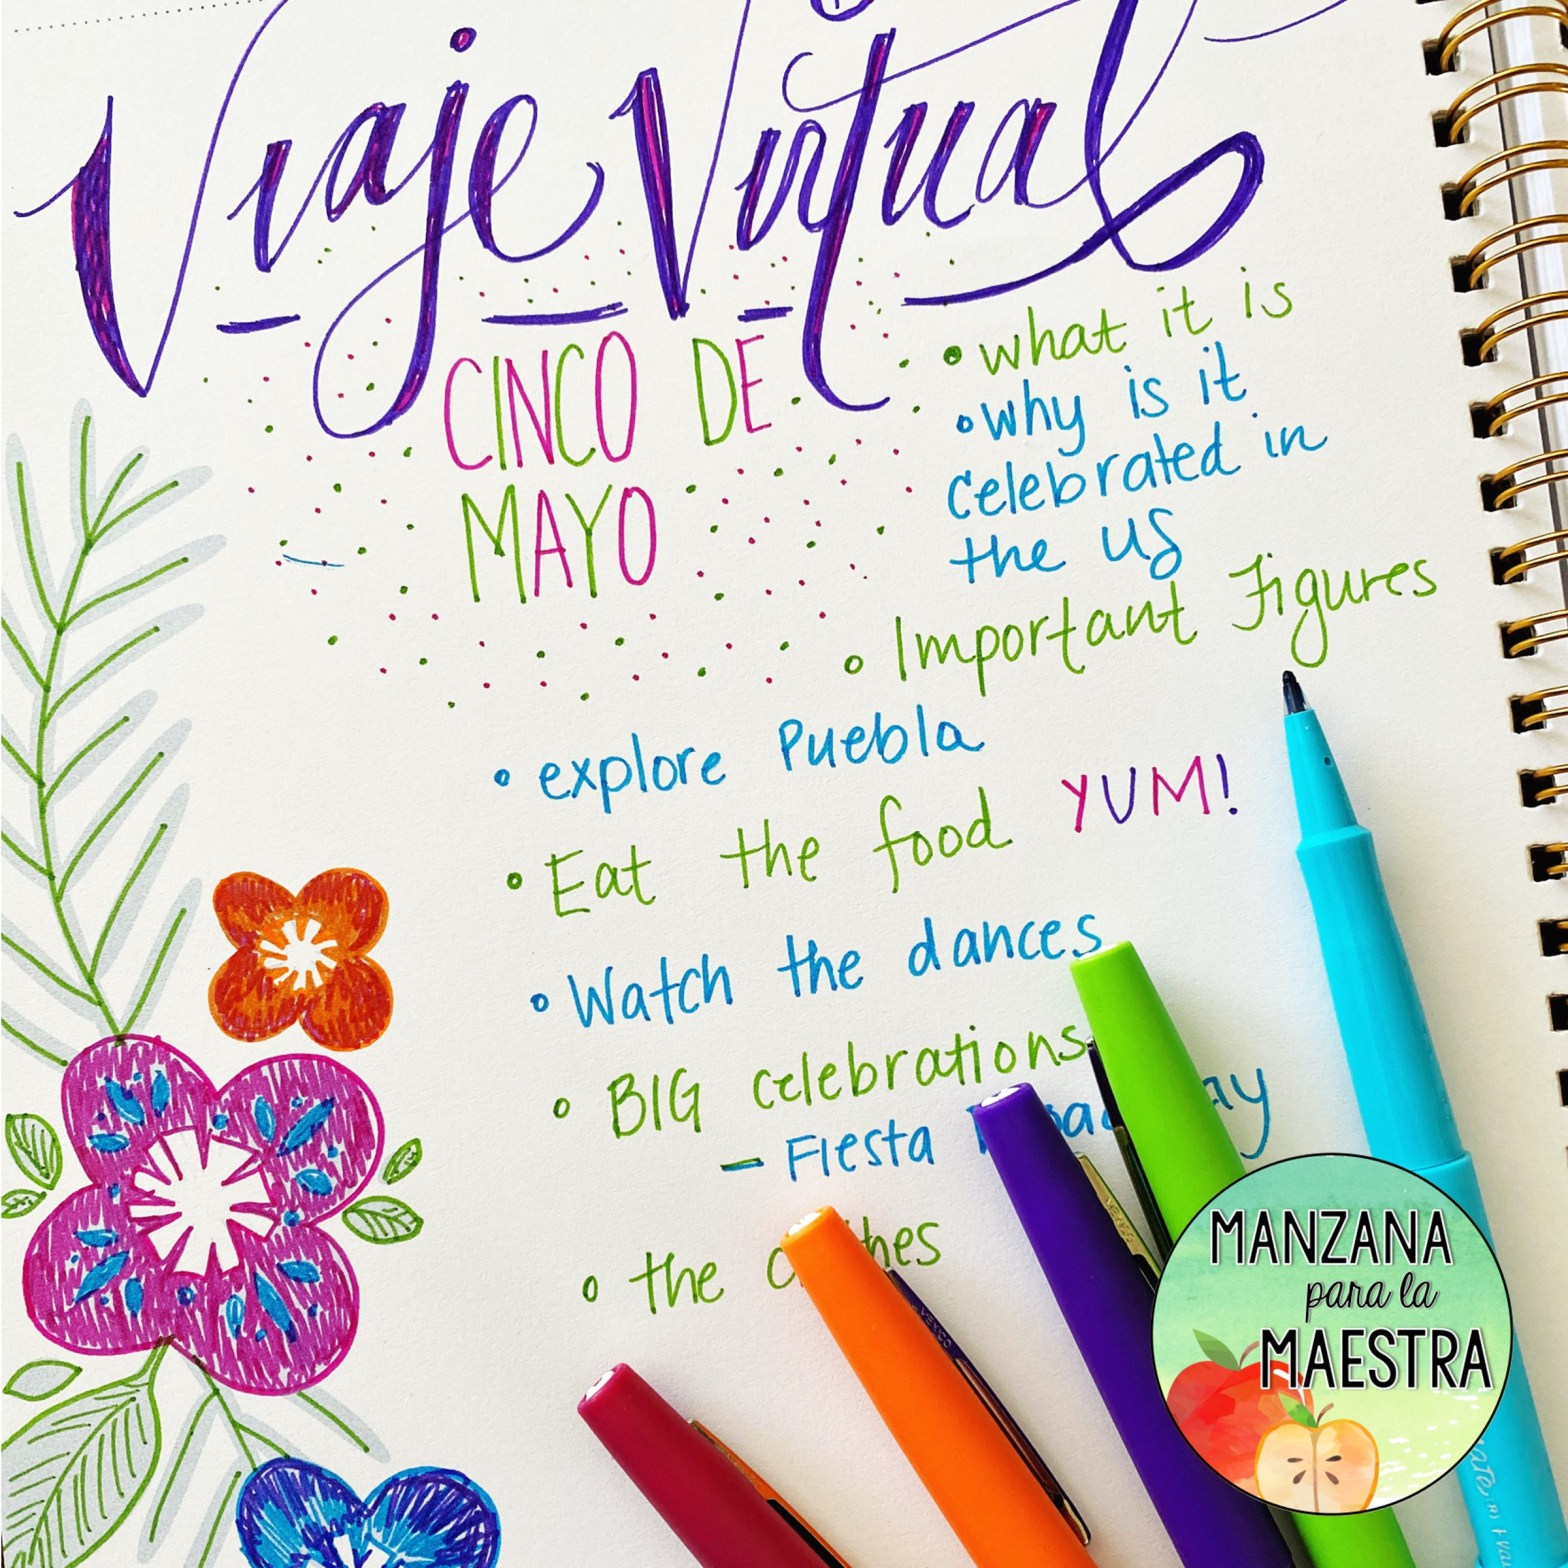 Viaje Virtual
CINCO DE
MAYO
• what it is
• why is it
celebrated in
the US
• Important Figures
• explore Puebla
• Eat the food YUM!
• Watch the dances
• BIG celebrations
- FIesta
• the
MANZANA
para la
MAESTRA